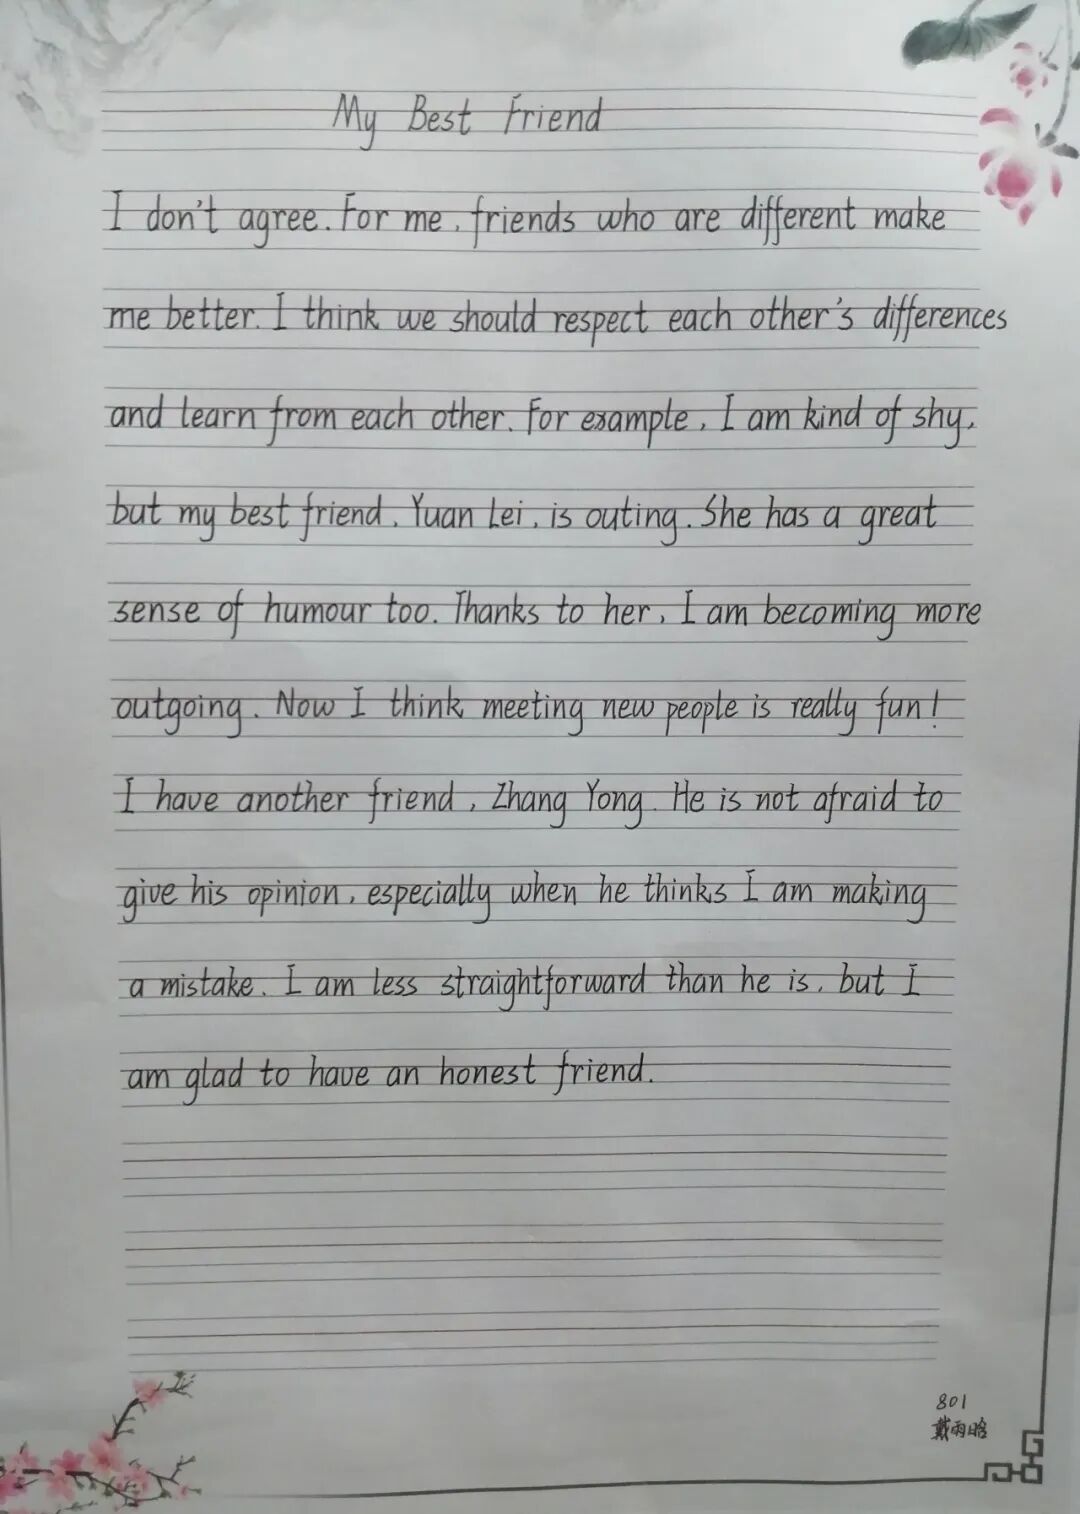 My Best Friend
I don't agree. For me, friends who are different make
me better. I think we should respect each other's differences
and learn from each other. For example, I am kind of shy,
but my best friend, Yuan Lei, is outing. She has a great
sense of humour too. Thanks to her, I am becoming more
outgoing. Now I think meeting new people is really fun!
I have another friend, Zhang Yong. He is not afraid to
give his opinion, especially when he thinks I am making
a mistake. I am less straightforward than he is, but I
am glad to have an honest friend.
801
戴雨晗